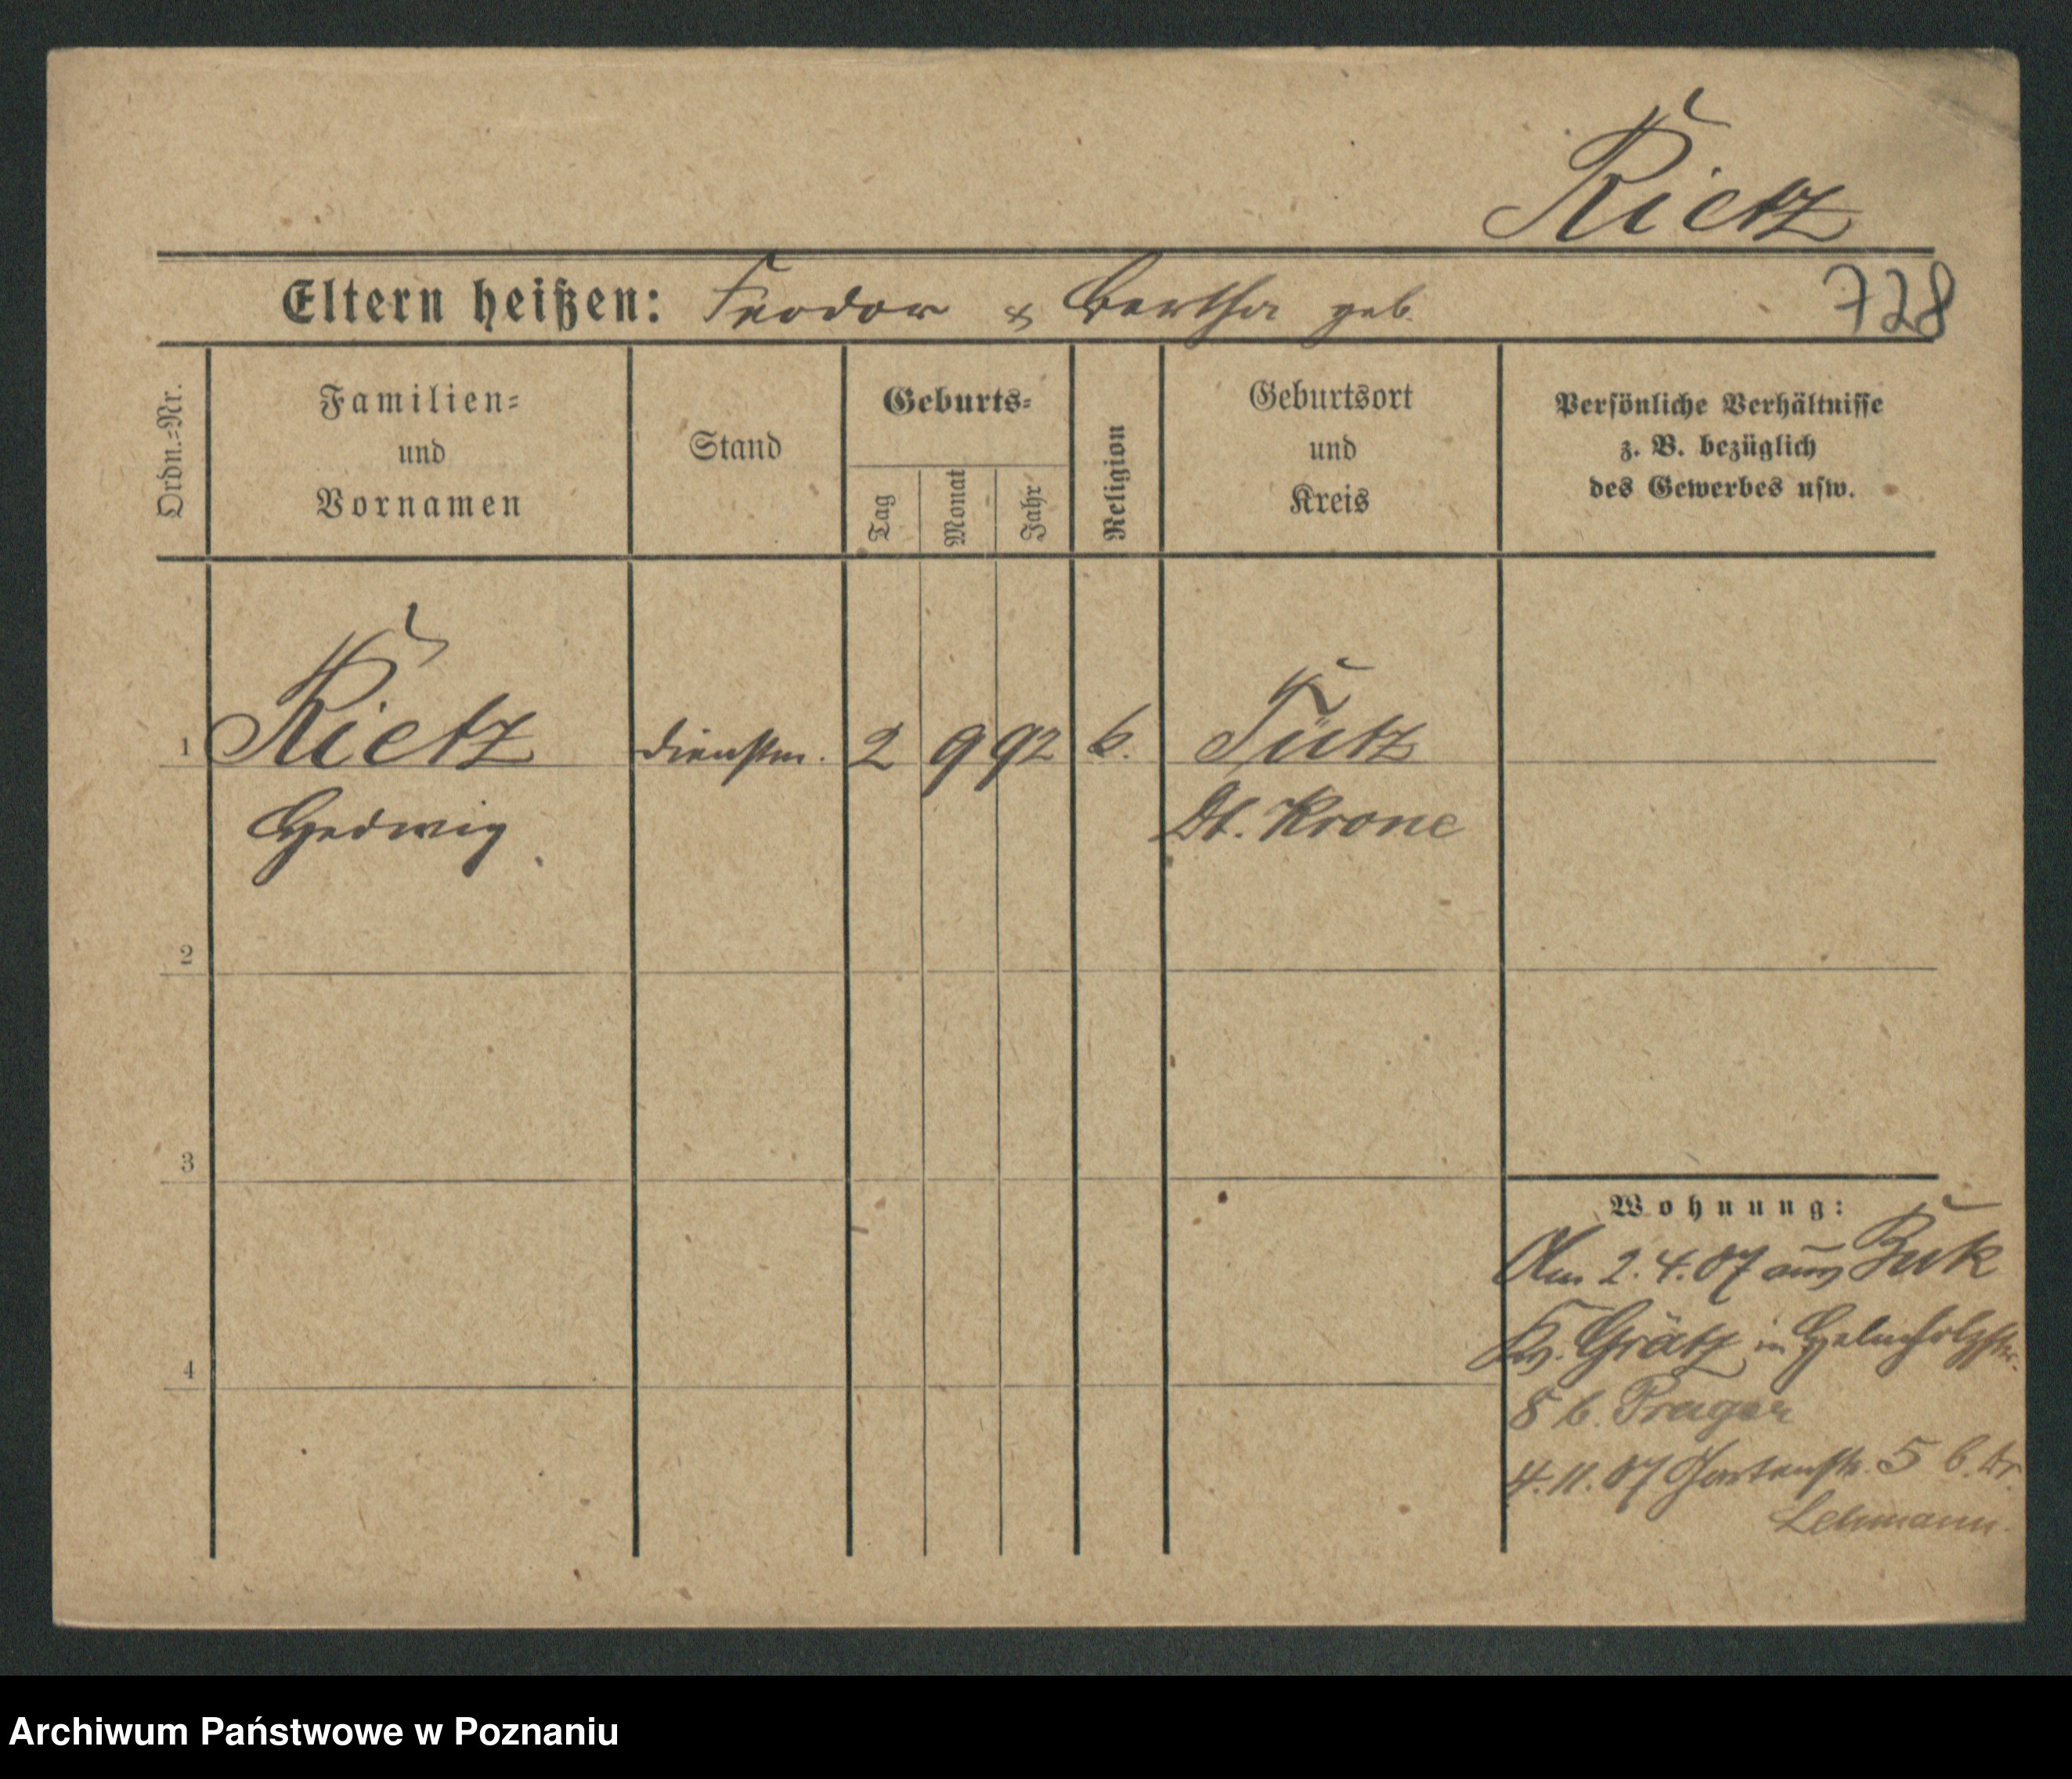 Rietz
Eltern heißen: Feodor & Bertha geb.
728
Ordn.-Nr.
Familien-
und
Vornamen
Stand
Geburts-
Tag
Monat
Jahr
Religion
Geburtsort
und
Kreis
Persönliche Verhältnisse
z. B. bezüglich
des Gewerbes usw.
1 Rietz Dienstm. 2 9 92 k. Tütz
Hedwig Dt. Krone
2
3
4
Wohnung:
Am 2.4.07 aus Buk
Kr. Grätz in
8 b. Prager
4.11.07 Gartenstr. 5 b. Dr.
Lehmann.
Archiwum Państwowe w Poznaniu